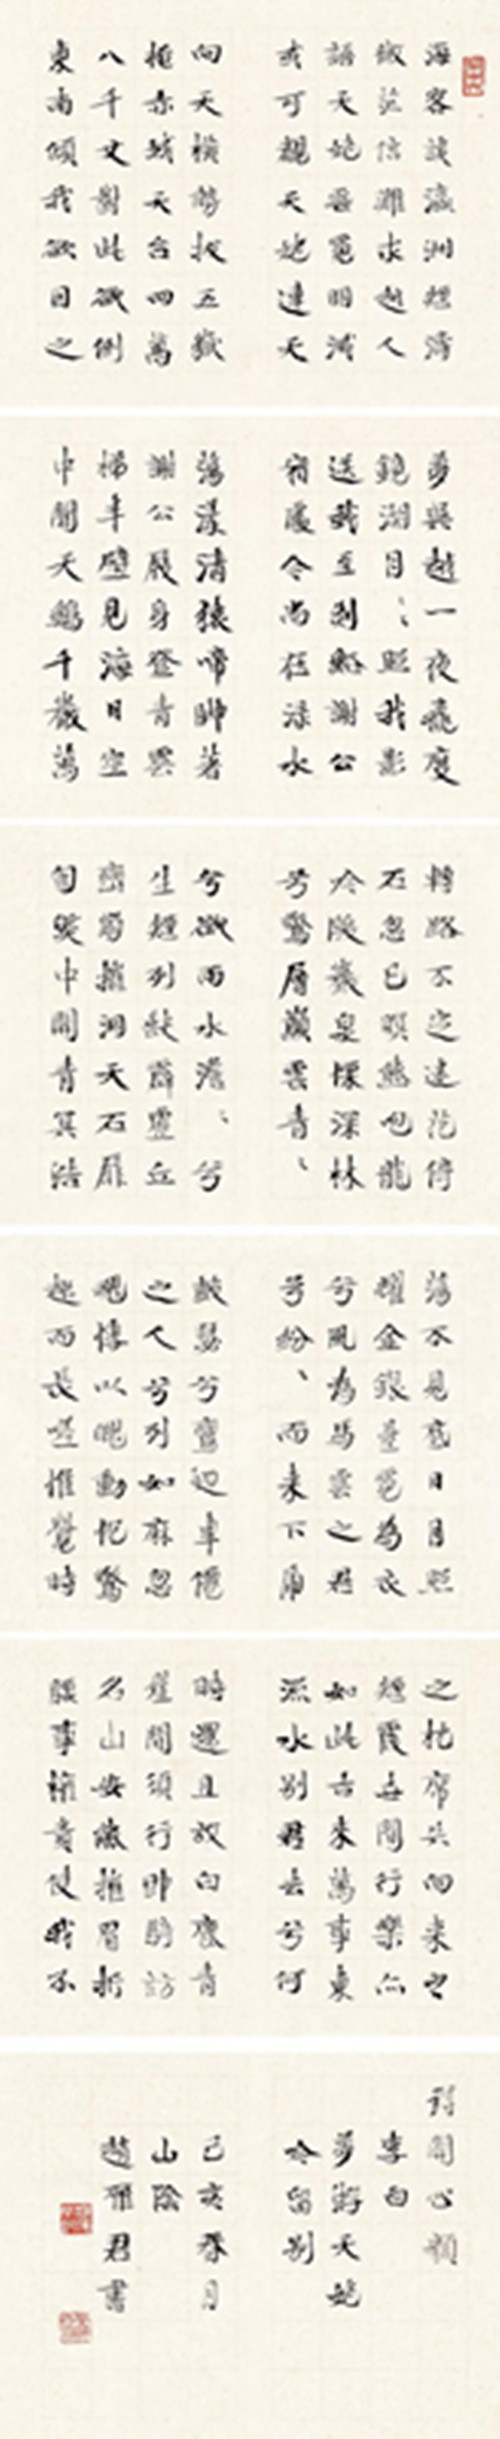 海客談瀛洲煙濤
微茫信難求越人
語天姥雲霓明滅
或可覩天姥連天
向天橫勢拔五嶽
掩赤城天台四萬
八千丈對此欲倒
東南傾我欲因之
夢吳越一夜飛度
鏡湖月〻照我影
送我至剡谿謝公
宿處今尚在淥水
蕩漾清猿啼腳著
謝公屐身登青雲
梯半壁見海日空
中聞天鷄千巖萬
轉路不定迷花倚
石忽已暝熊咆龍
吟殷巖泉慄深林
兮驚層巔雲青〻
兮欲雨水澹〻兮
生煙列缺霹靂丘
巒崩摧洞天石扉
訇然中開青冥浩
蕩不見底日月照
耀金銀臺霓為衣
兮風為馬雲之君
兮紛〻而來下虎
鼓瑟兮鸞迴車僊
之人兮列如麻忽
魂悸以魄動怳驚
起而長嗟惟覺時
之枕席失向來之
煙霞世間行樂亦
如此古來萬事東
流水別君去兮何
時還且放白鹿青
崖間須行即騎訪
名山安能摧眉折
腰事權貴使我不
得開心顏
李白
夢遊天姥
吟留別
己亥春月
山陰
趙雁君書